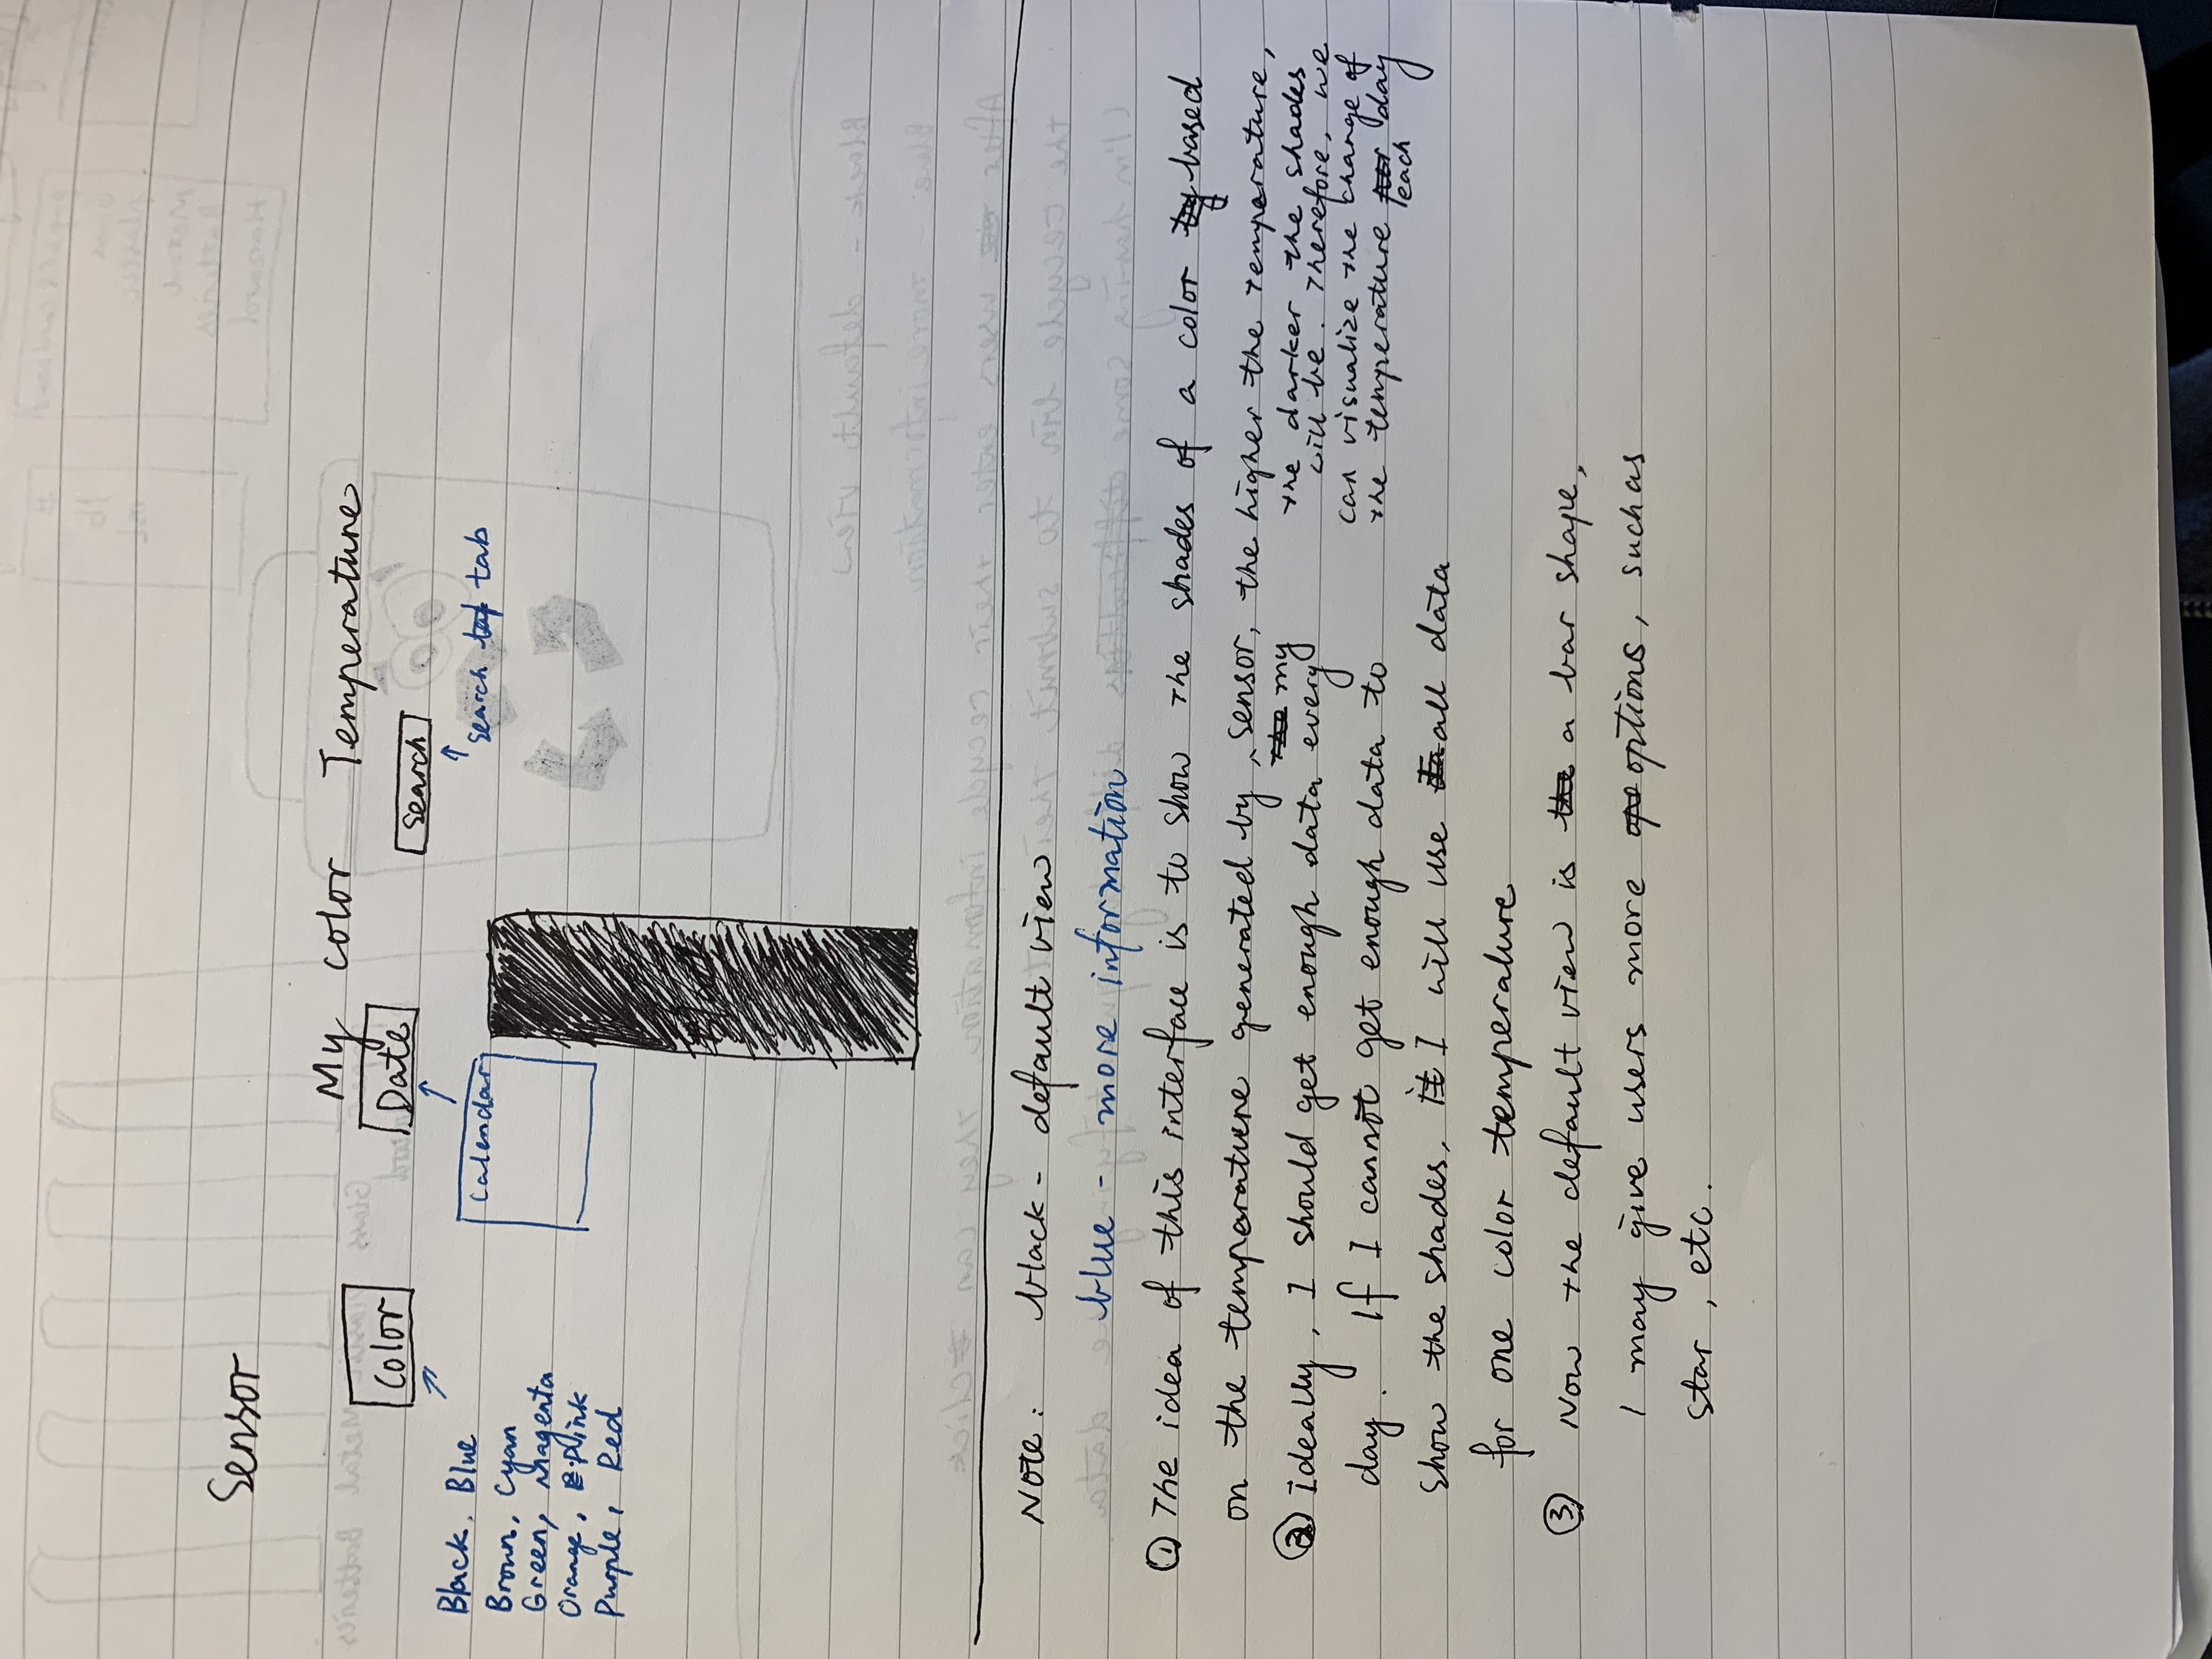 Sensor
My color Temperature
Color
Date
Search
Black, Blue
Brown, Cyan
Green, Magenta
Orange, Pink
Purple, Red
Calendar
search tab
Note: black - default view
blue - more information
① The idea of this interface is to show the shades of a color based
on the temperature generated by my sensor, the higher the temperature,
the darker the shades
will be. Therefore, we
can visualize the change of
the temperature each day
② Ideally, I should get enough data every
day. If I cannot get enough data to
show the shades, I will use all data
for one color temperature
③ Now the default view is a bar shape,
I may give users more options, such as
star, etc.